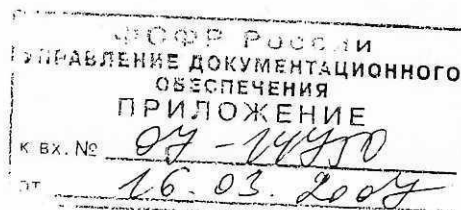 ФСФР России
УПРАВЛЕНИЕ ДОКУМЕНТАЦИОННОГО
ОБЕСПЕЧЕНИЯ
ПРИЛОЖЕНИЕ
К ВХ. № 07-14750
ОТ 16.03.2007